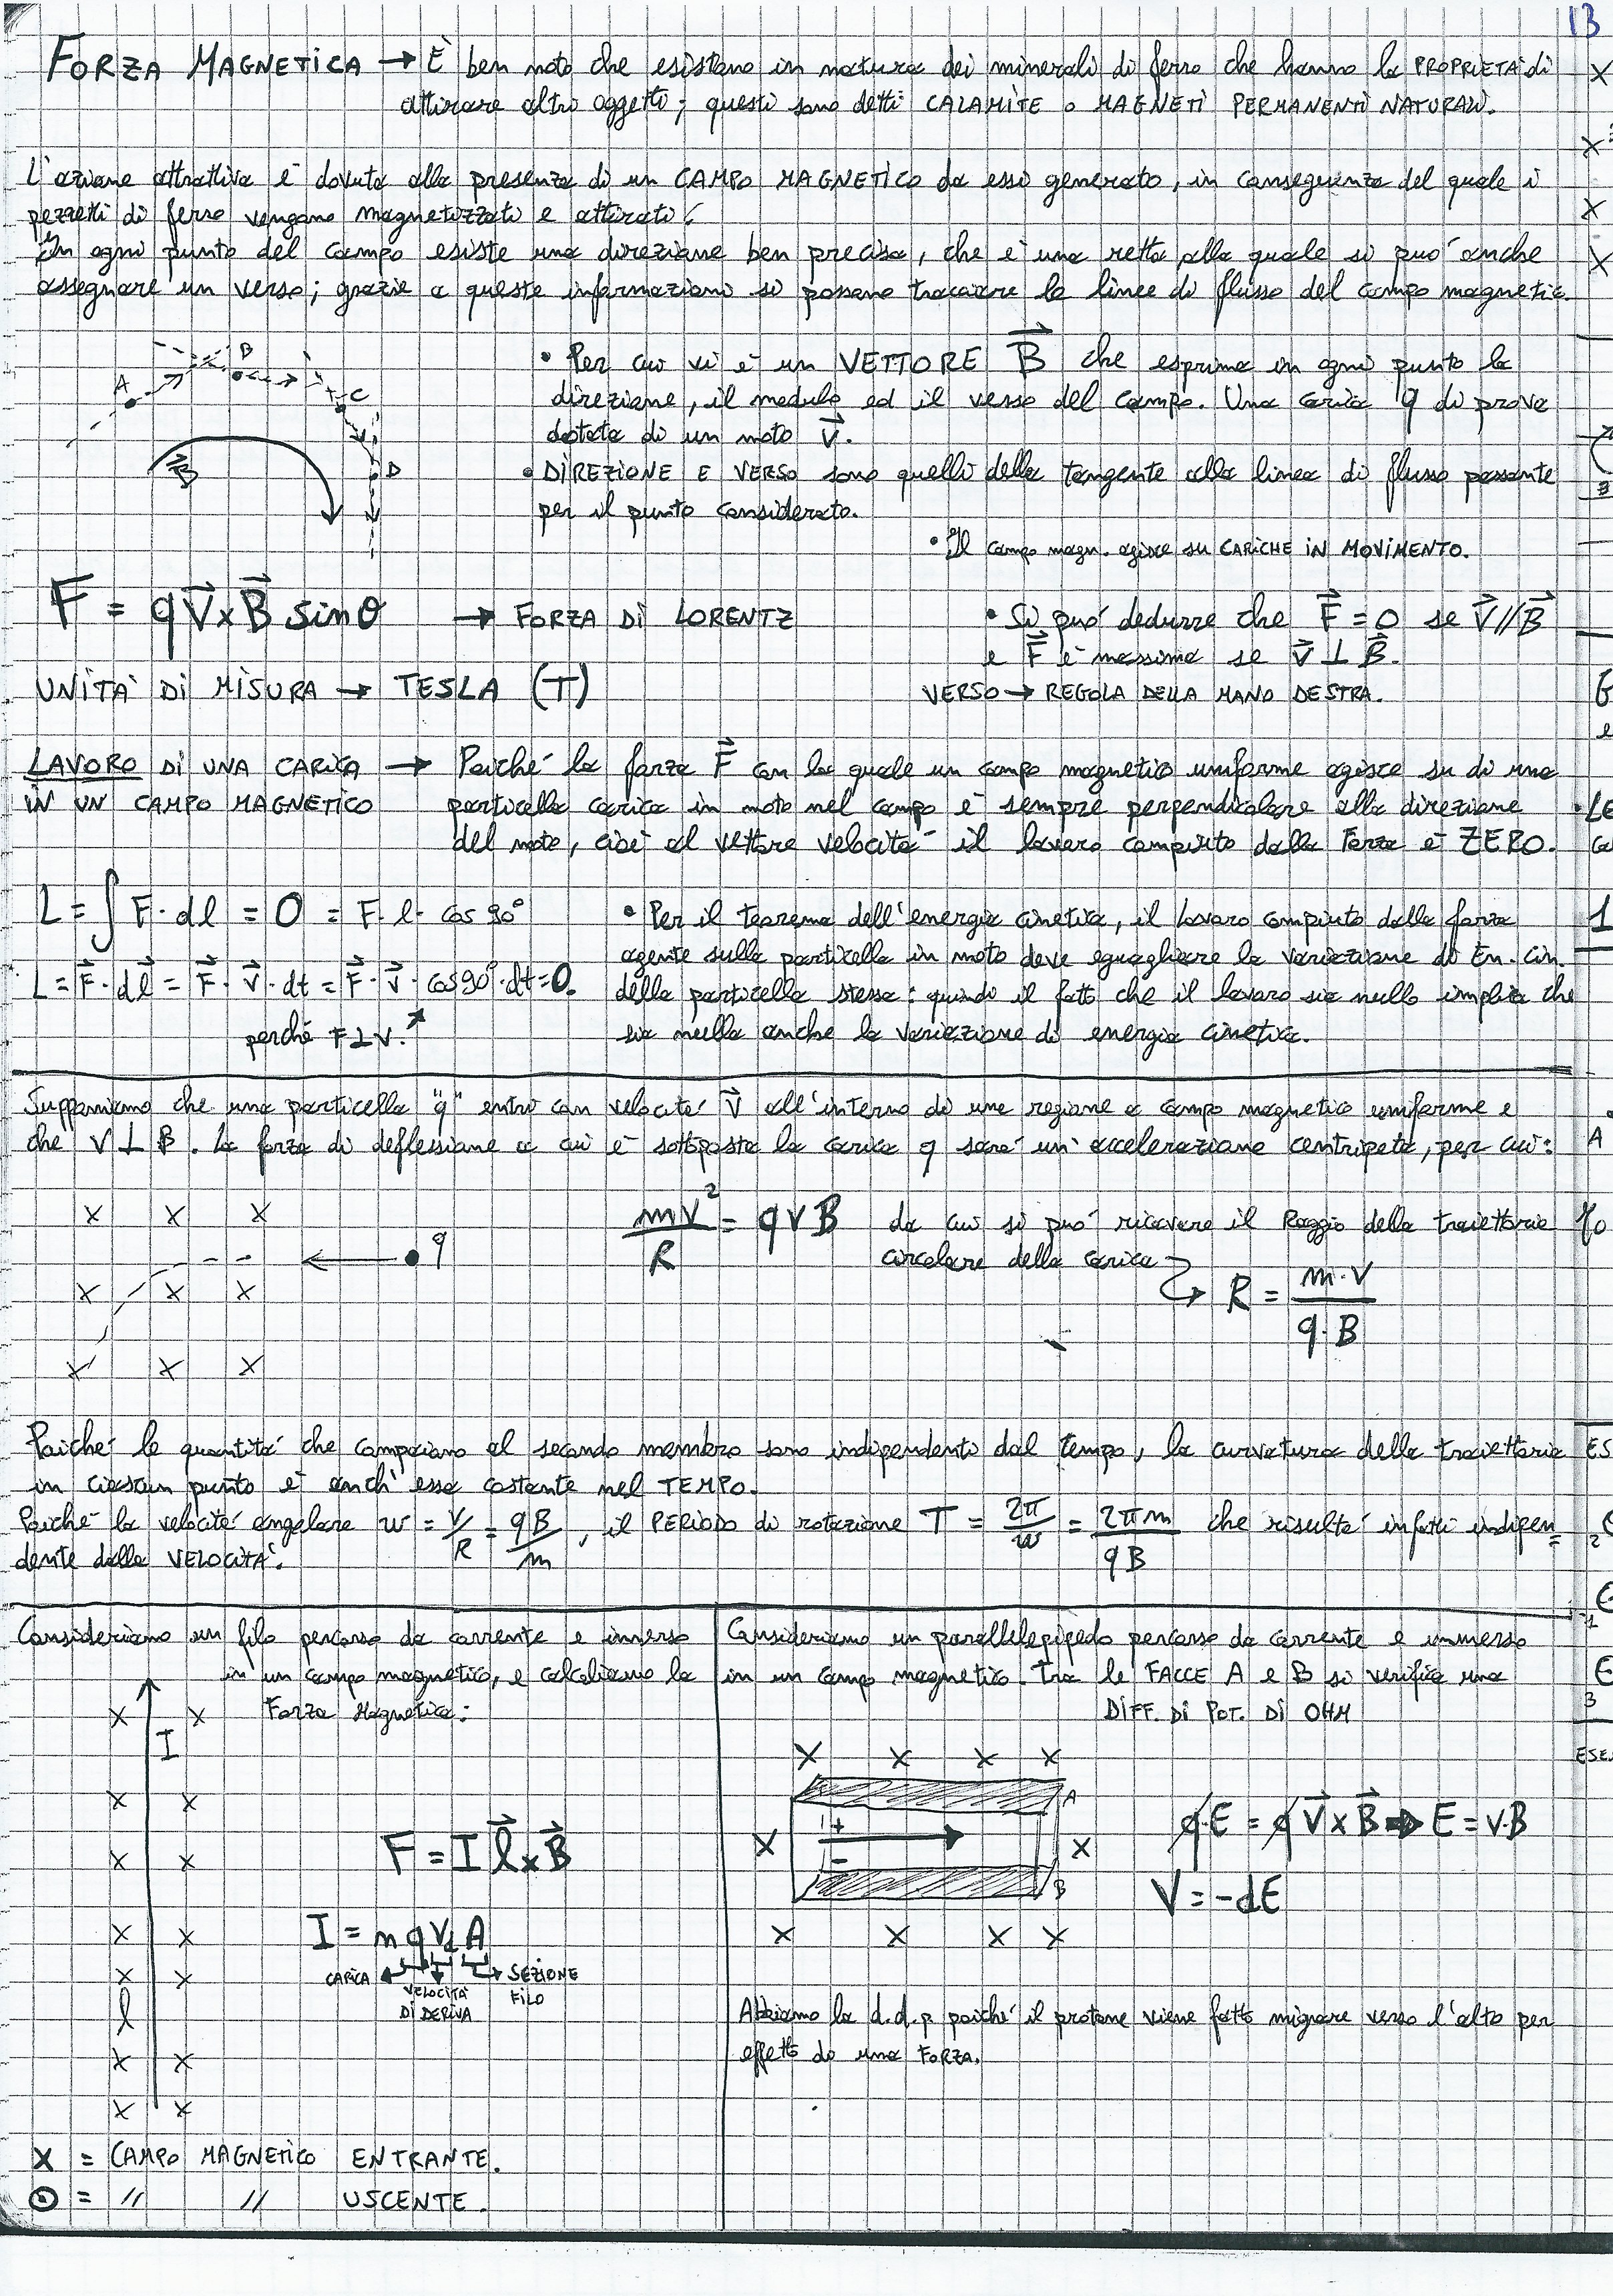 13
FORZA MAGNETICA → È ben noto che esistono in natura dei minerali di ferro che hanno la PROPRIETÀ di
attirare altri oggetti; questi sono detti CALAMITE o MAGNETI PERMANENTI NATURALI.
L'azione attrattiva è dovuta alla presenza di un CAMPO MAGNETICO da essi generato, in conseguenza del quale i
pezzetti di ferro vengono magnetizzati e attirati.
In ogni punto del campo esiste una direzione ben precisa, che è una retta alla quale si può anche
assegnare un verso; grazie a queste informazioni si possono tracciare le linee di flusso del campo magnetic.
A B C D
B⃗
• Per cui vi è un VETTORE B⃗ che esprime in ogni punto la
direzione, il modulo ed il verso del campo. Una carica q di prova
dotata di un moto v⃗.
• DIREZIONE E VERSO sono quelli della tangente alla linea di flusso passante
per il punto considerato.
• Il campo magn. agisce su CARICHE IN MOVIMENTO.
F = q V⃗ x B⃗ sinθ → FORZA DI LORENTZ
• Si può dedurre che F⃗ = 0 se V⃗ // B⃗
e F⃗ è massima se V⃗ ⊥ B⃗.
UNITÀ DI MISURA → TESLA (T)
VERSO → REGOLA DELLA MANO DESTRA.
LAVORO DI UNA CARICA → Poiché la forza F⃗ con la quale un campo magnetico uniforme agisce su di una
IN UN CAMPO MAGNETICO particella carica in moto nel campo è sempre perpendicolare alla direzione
del moto, cioè al vettore velocità il lavoro compiuto dalla Forza è ZERO.
L = ∫ F · dl = 0 = F · l · cos 90°
L = F⃗ · dl⃗ = F⃗ · V⃗ · dt = F⃗ · V⃗ · cos90° · dt = 0.
perché F ⊥ V.
• Per il teorema dell'energia cinetica, il lavoro compiuto dalla forza
agente sulla particella in moto deve eguagliare la variazione di En. cin.
della particella stessa: quindi il fatto che il lavoro sia nullo implica che
sia nulla anche la variazione di energia cinetica.
Supponiamo che una particella "q" entri con velocità V⃗ all'interno di una regione a campo magnetico uniforme e
che V ⊥ B. La forza di deflessione a cui è sottoposta la carica q sarà un'accelerazione centripeta, per cui:
x x x
q
x x x
x x x
mv²/R = qvB da cui si può ricavare il Raggio della traiettoria
circolare della carica
R = m·v / q·B
Poiché le quantità che compaiono al secondo membro sono indipendenti dal tempo, la curvatura della traiettoria
in ciascun punto è anch'essa costante nel TEMPO.
Poiché la velocità angolare w = v/R = qB/m, il PERIODO di rotazione T = 2π/w = 2πm/qB che risulta infatti indipen=
dente dalla VELOCITÀ.
Consideriamo un filo percorso da corrente e immerso
in un campo magnetico, e calcoliamo la
Forza Magnetica:
I
F = I l⃗ x B⃗
I = n q Vd A
CARICA
VELOCITÀ DI DERIVA
SEZIONE FILO
l
Consideriamo un parallelepipedo percorso da corrente e immerso
in un campo magnetico. Tra le FACCE A e B si verifica una
DIFF. DI POT. DI OHM
x x x x
A
+
x x
−
B
x x x x
q·E = q V⃗ x B⃗ ⇒ E = v·B
V = -dE
Abbiamo la d.d.p. poiché il protone viene fatto migrare verso l'alto per
effetto di una FORZA.
X = CAMPO MAGNETICO ENTRANTE.
⊙ = // // USCENTE.